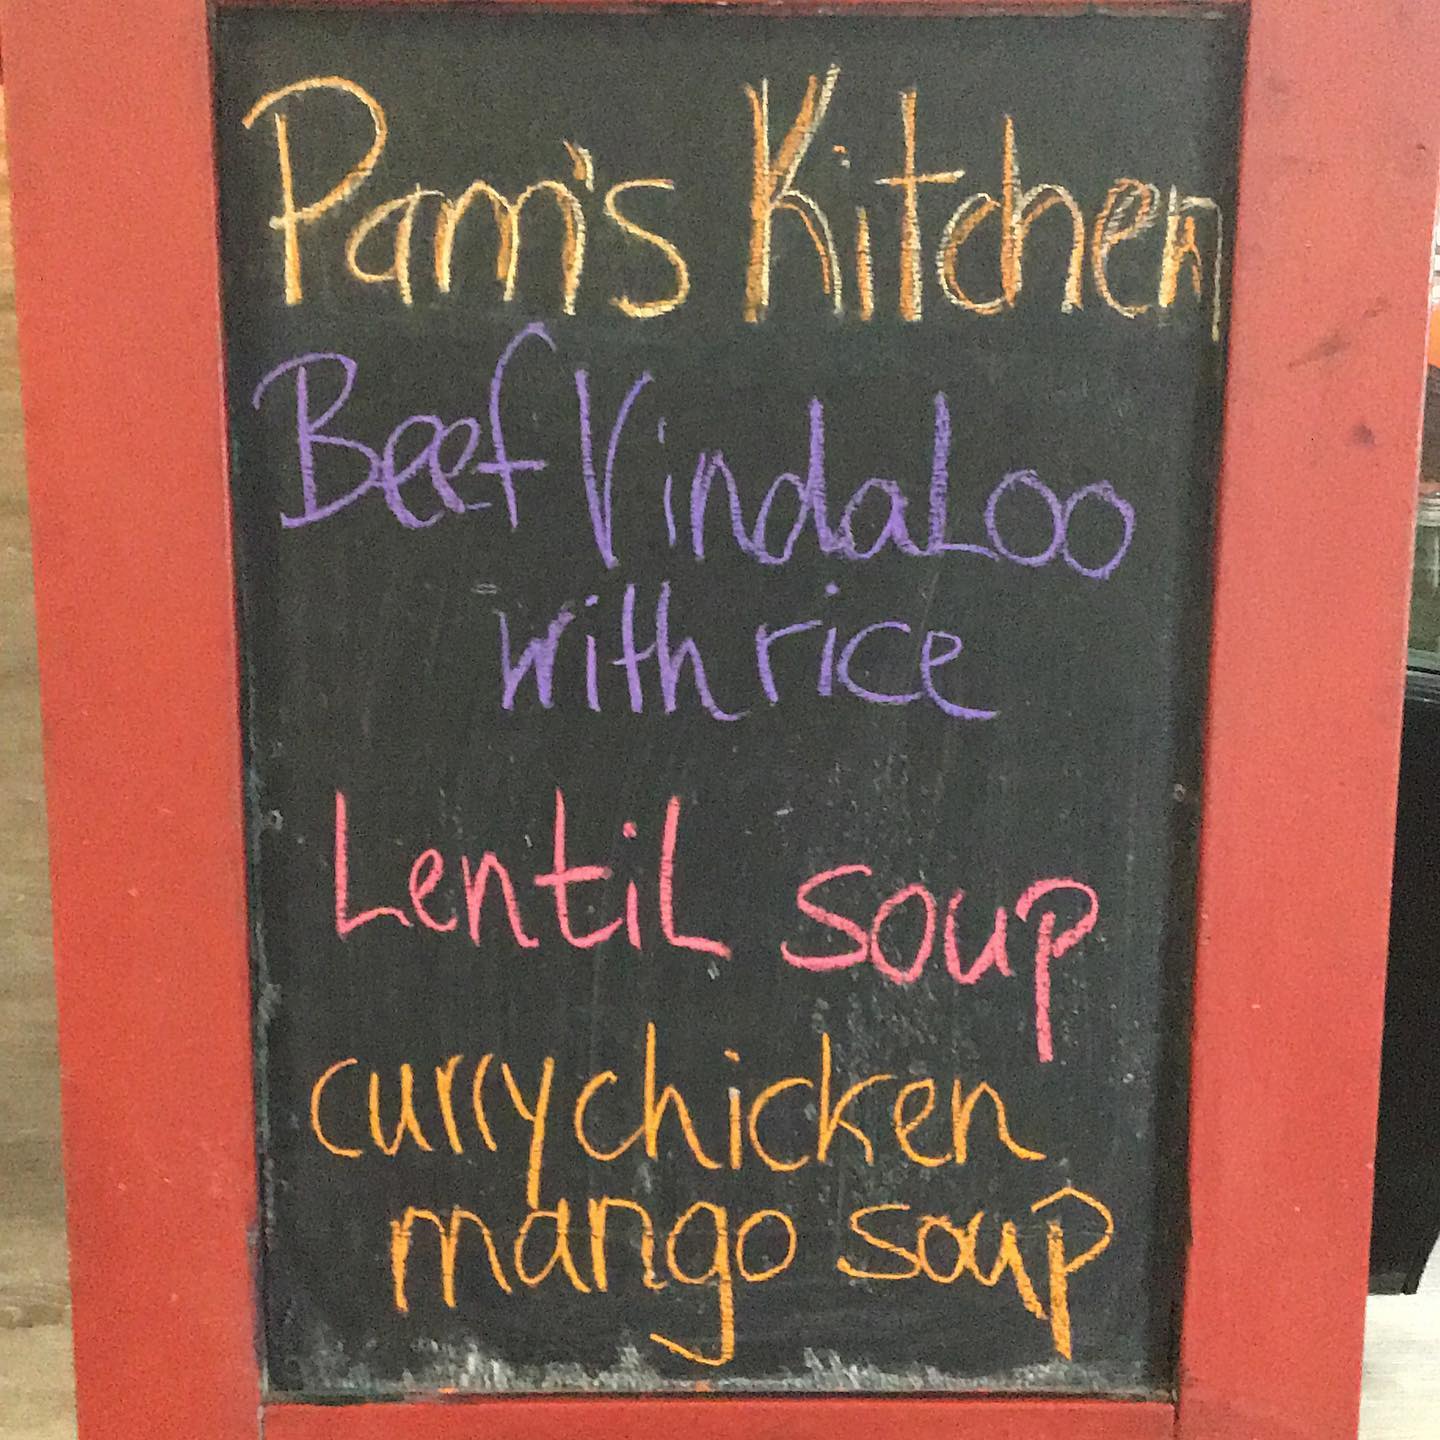 Pam's Kitchen
Beef VindaLoo
with rice
LentiL soup
curry chicken
mango soup